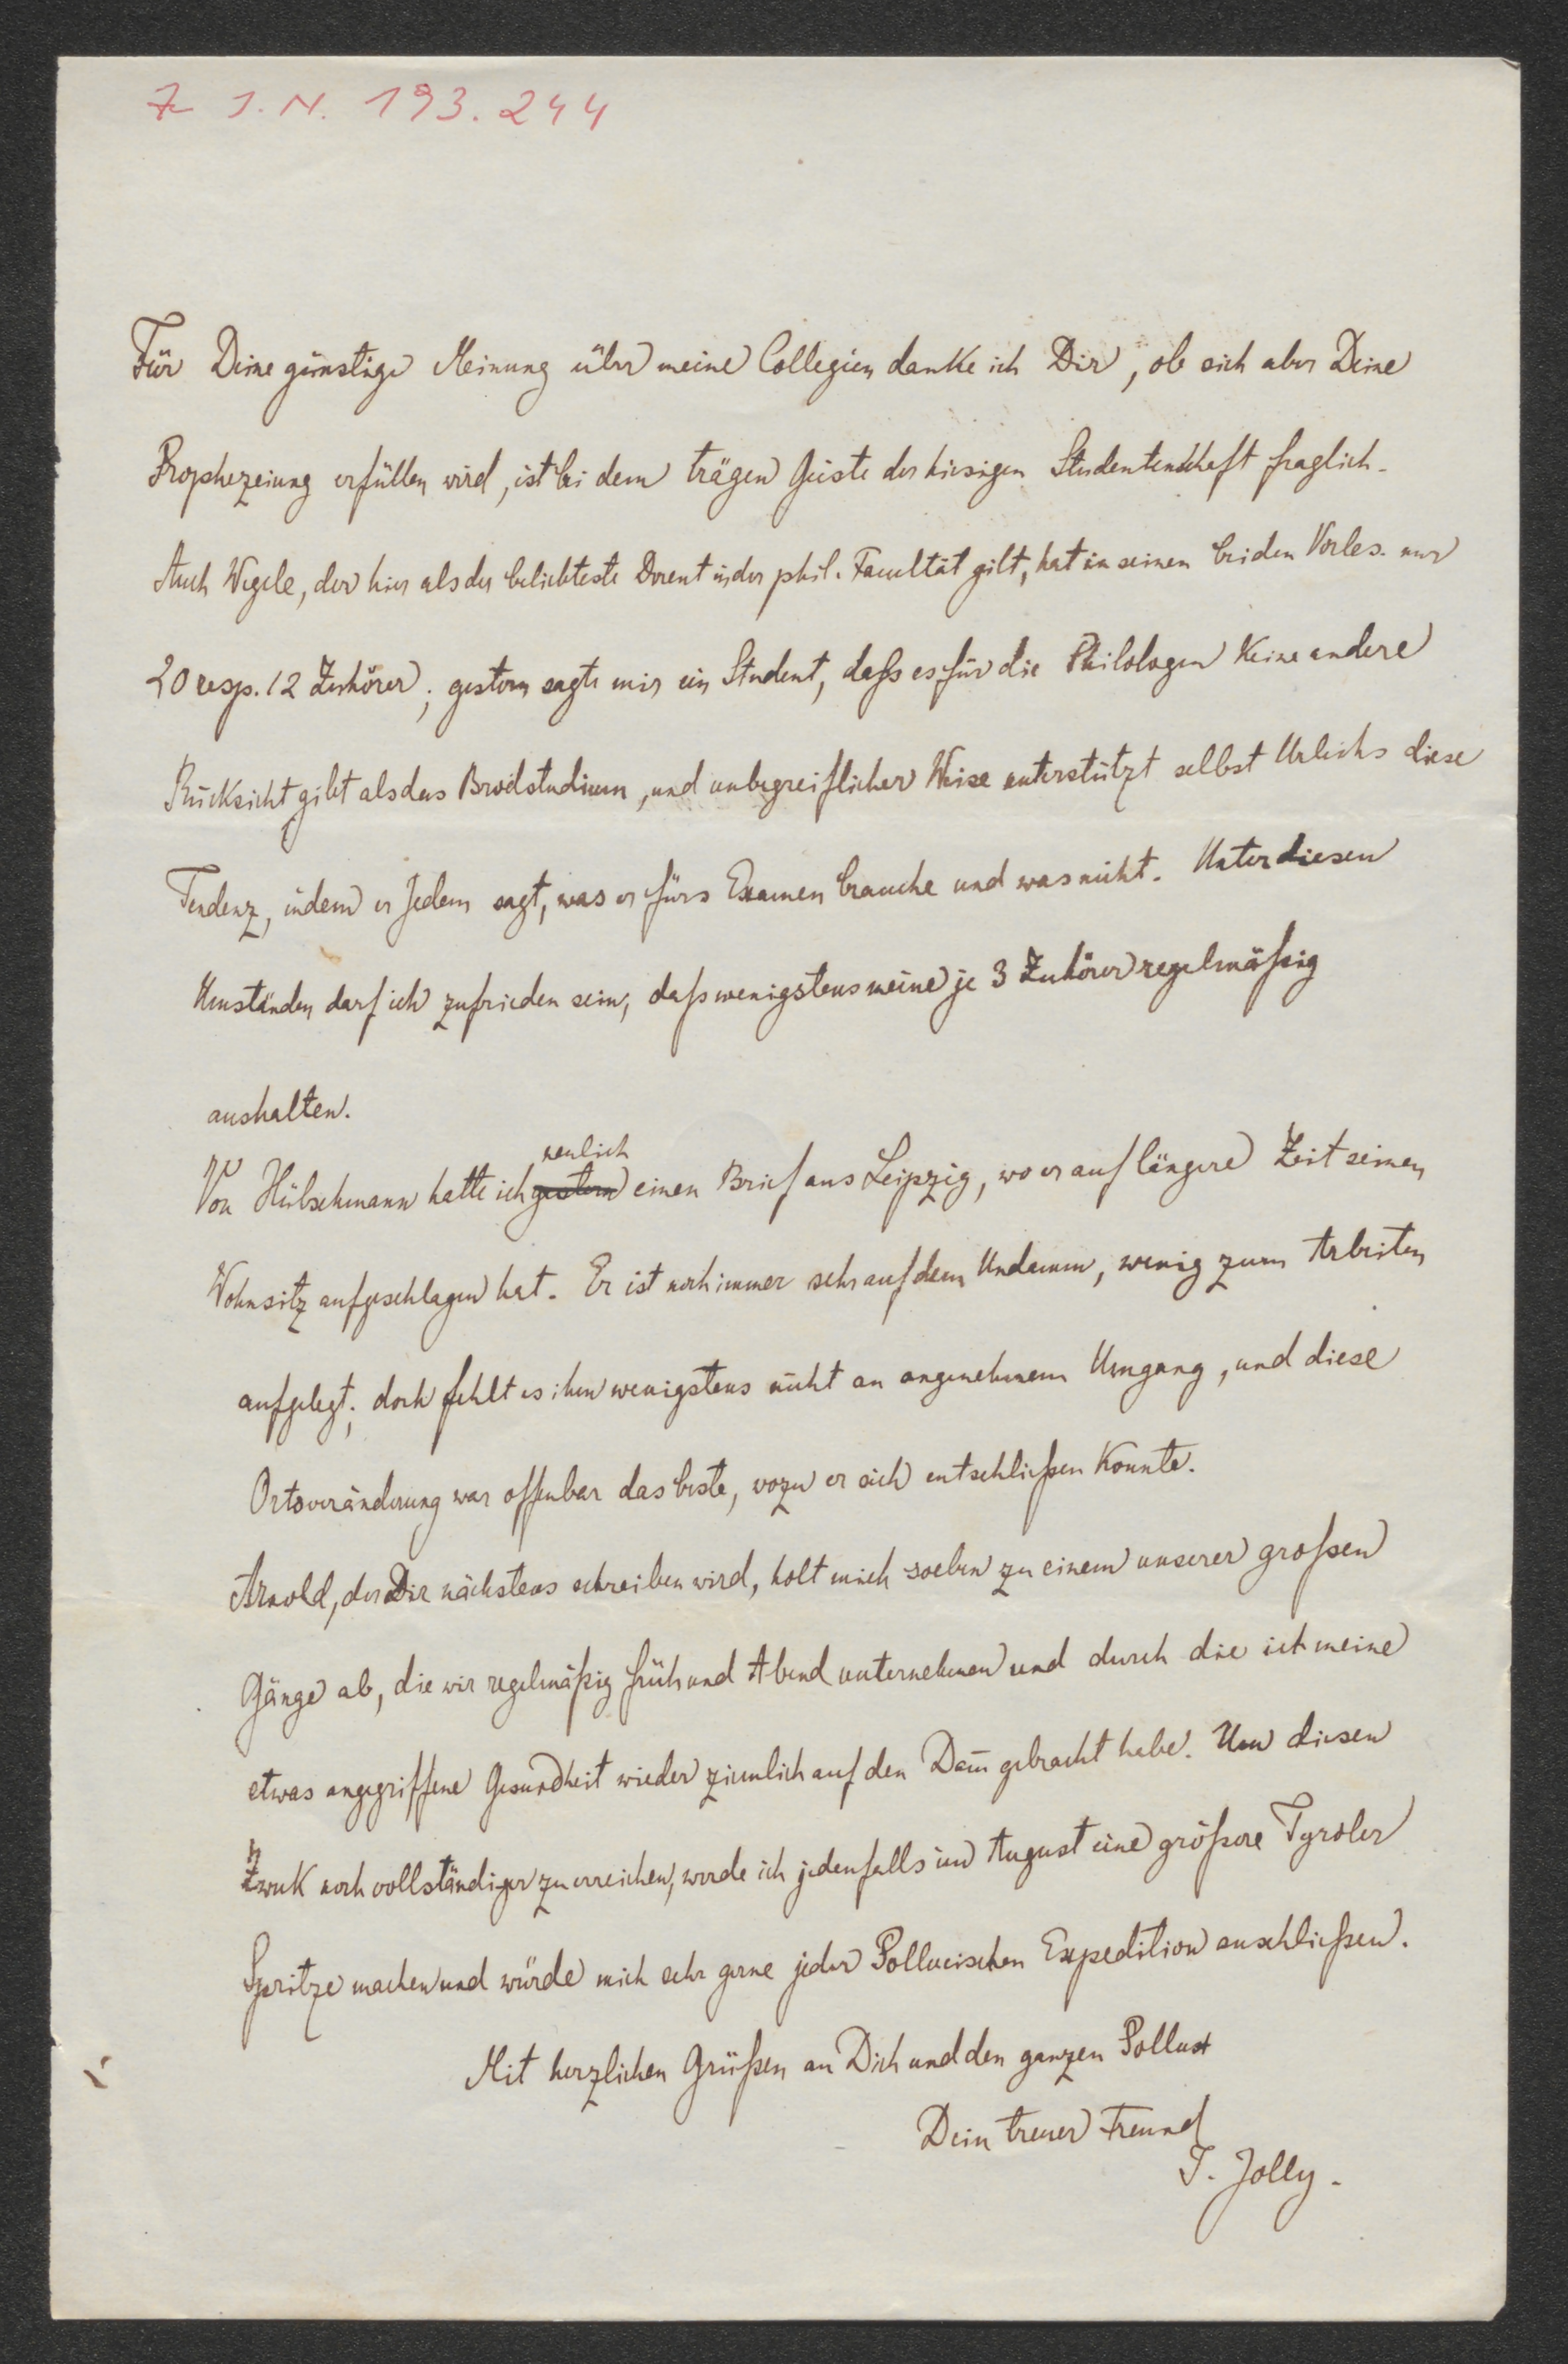 Z I.N. 193.244
Für Deine günstige Meinung über meine Collegien danke ich Dir, ob sich aber Deine
Prophezeiung erfüllen wird, ist bei dem trägen Geiste der hiesigen Studentenschaft fraglich.
Auch Wegele, der hier als der beliebteste Docent in der phil. Facultät gilt, hat in seinen beiden Vorles. nur
20 resp. 12 Zuhörer; gestern sagte mir ein Student, daß es für die Philologen keine andere
Rücksicht gibt als das Brodstudium, und unbegreiflicher Weise unterstützt selbst Urlichs diese
Tendenz, indem er Jedem sagt, was er fürs Examen brauche und was nicht. Unter diesen
Umständen darf ich zufrieden sein, daß wenigstens meine je 3 Zuhörer regelmäßig
aushalten.
neulich
Von Hübschmann hatte ich gestern einen Brief aus Leipzig, wo er auf längere Zeit seinen
Wohnsitz aufgeschlagen hat. Er ist noch immer sehr auf dem Undamm, wenig zum Arbeiten
aufgelegt; doch fehlt es ihm wenigstens nicht an angenehmem Umgang, und diese
Ortsveränderung war offenbar das beste, wozu er sich entschließen konnte.
Arnold, der Dir nächstens schreiben wird, holt mich soeben zu einem unserer großen
Gänge ab, die wir regelmäßig früh und Abend unternehmen und durch die ich meine
etwas angegriffene Gesundheit wieder ziemlich auf den Dam̄ gebracht habe. Um diesen
Zweck noch vollständiger zu erreichen, werde ich jedenfalls im August eine größere Tyroler
Spritze machen und würde mich sehr gerne jeder Polluxischen Expedition anschließen.
Mit herzlichen Grüßen an Dich und den ganzen Pollux
Dein treuer Freund
J. Jolly.